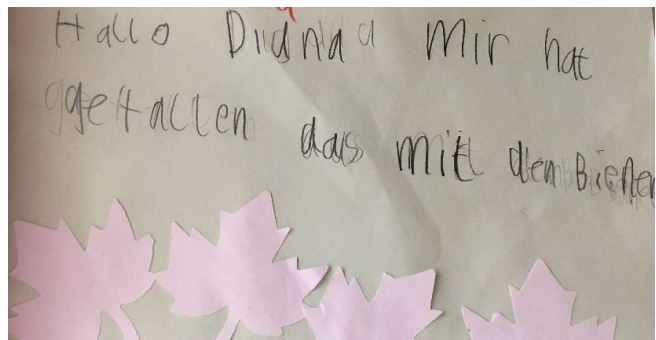 Hallo Diana Mir hat
gefallen das mit den Bienen